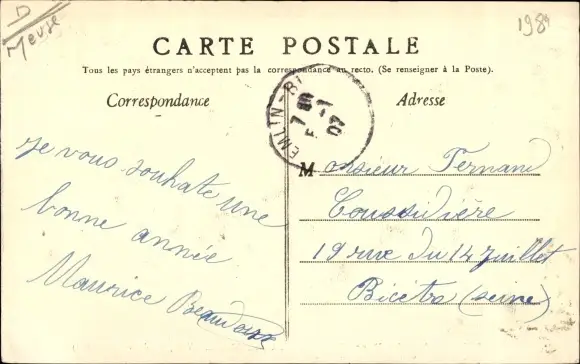 D
Meuse
1989
CARTE POSTALE
Tous les pays étrangers n'acceptent pas la correspondance au recto. (Se renseigner à la Poste).
Correspondance
Adresse
EMLIN-BI
7 1
07
je vous souhaite une
bonne année
Maurice
Monsieur Fernand
Coussidière
19 rue du 14 juillet
Bicêtre (seine)